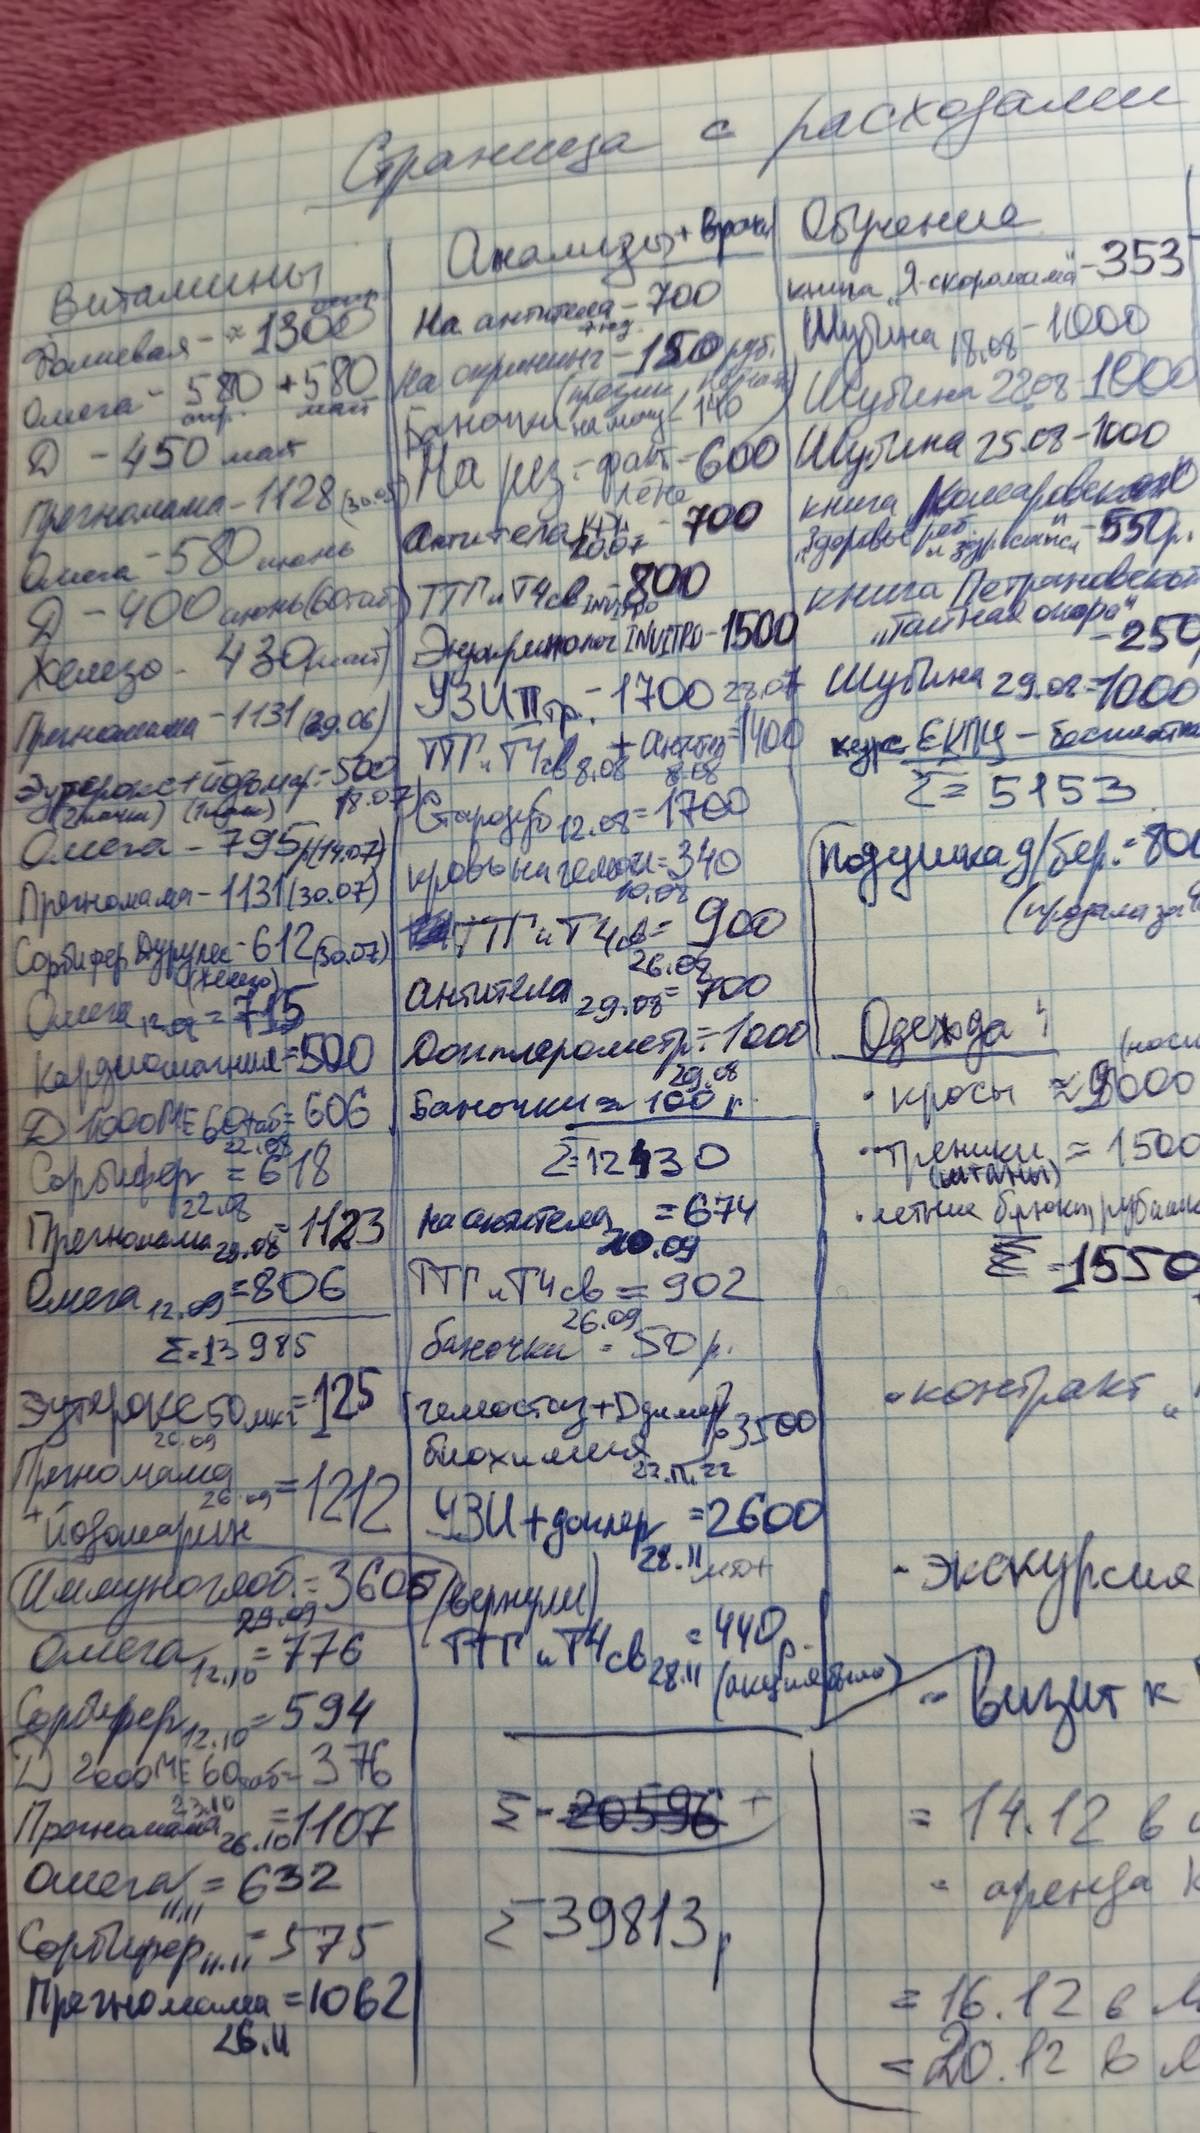 Страница с расходами
Витамины
Фолиевая - ≈ 1300 апр.
Омега - 580 + 580
апр. май
Д - 450 май
Прегномама - 1128 (30.05)
Омега - 580 июнь
Д - 400 июнь (60таб)
Железо - 430 (май)
Прегномама - 1131 (29.06)
Эутирокс + Йодомар. - 500
18.07
Омега - 795 р (14.07)
Прегномама - 1131 (30.07)
Сорбифер Дурулес - 612 (30.07)
(железо)
Омега = 715
Кардиомагнил = 500
Д 1000МЕ 60таб = 606
22.08
Сорбифер = 618
22.08
Прегномама 29.08 = 1123
Омега 12.09 = 806
Σ = 13985
Эутерокс 50 мкг = 125
26.09
Прегномама 26.09 = 1212
+ Йодомарин
Иммуноглоб. = 3605 (вернули)
29.09
Омега 12.10 = 776
Сорбифер 12.10 = 594
Д 2000МЕ 60таб = 376
23.10
Прегномама 26.10 = 1107
Омега 11.11 = 632
Сорбифер 11.11 = 575
Прегномама = 1062
26.11
Анализы + врачи
На антитела - 700
На скрининг - 150 руб.
Баночки на мочу - 140
На рез. - факт. - 600
Антитела - 700
20.07
ТТГ и Т4 св INVITRO - 800
Эндокринолог INVITRO - 1500
УЗИ II тр. - 1700 28.07
ТТГ и Т4 св 8.08 + антител = 1400
8.08
Стародуб 12.08 = 1700
кровь на гемогл = 340
ТТГ и Т4 св = 900
антитела 29.08 = 700
Допплерометр. = 1000
29.08
Баночки ≈ 100 р.
Σ = 12430
на антитела = 674
ТТГ и Т4 св = 902
26.09
баночки = 50 р.
гемостаз + Dдимер 3500
биохимия
УЗИ + доплер = 2600
28.11
ТТГ и Т4 св 28.11 = 440 р.
(акция была)
Σ - 20596 +
Σ 39813 р
Обучение
книга „Я-скоромама“ - 353
Шубина 18.08 - 1000
Шубина 22.08 - 1000
Шубина 25.08 - 1000
книга Комаровского
„Здоровье реб. и здр. смысл“ - 550 р.
книга Петрановской
„Тайная опора“
- 250
Шубина 29.08 = 1000
курс ЕКПЦ - бесплатн
Σ = 5153
Подушка д/бер. = 800
(продала за
Одежда:
• кросы ≈ 9000
• треники = 1500
(штаны)
• летние брюки, рубашка
Σ = 1550
• контракт „
- экскурсия
- визит к
= 14.12 в
- аренда
= 16.12 в
= 20.12 в